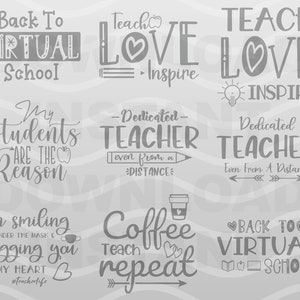 Back To
VIRTUAL
School
Teach
LOVE
Inspire
TEACH
LOVE
INSPIRE
My
Students
ARE THE
Reason
Dedicated
TEACHER
even from a
DISTANCE
Dedicated
TEACHER
Even From A Distance
I'm smiling
UNDER THE MASK &
hugging you
IN MY HEART
#teacherlife
Coffee
Teach
repeat
BACK TO
VIRTUAL
SCHOOL